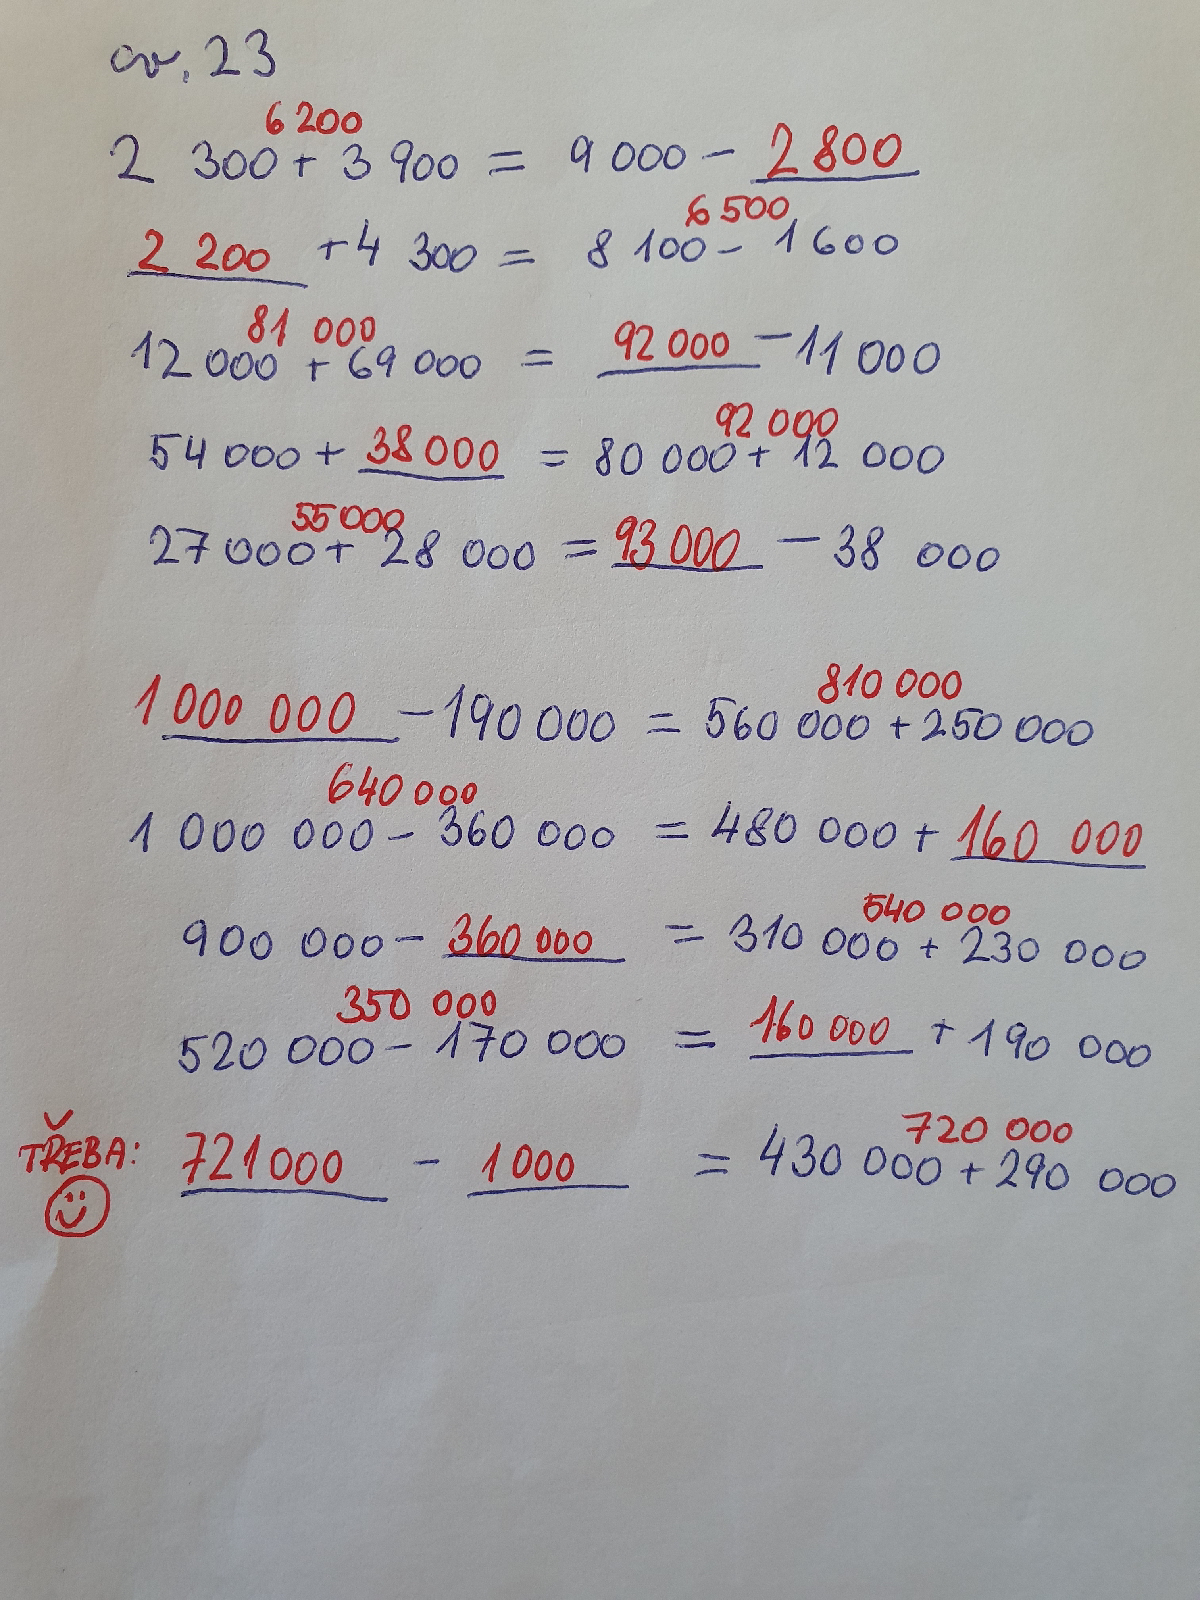 cv. 23
6 200
2 300 + 3 900 = 9 000 - 2 800
6 500
2 200 + 4 300 = 8 100 - 1 600
81 000
12 000 + 69 000 = 92 000 - 11 000
92 000
54 000 + 38 000 = 80 000 + 12 000
55 000
27 000 + 28 000 = 93 000 - 38 000
810 000
1 000 000 - 190 000 = 560 000 + 250 000
640 000
1 000 000 - 360 000 = 480 000 + 160 000
540 000
900 000 - 360 000 = 310 000 + 230 000
350 000
520 000 - 170 000 = 160 000 + 190 000
720 000
TŘEBA: 721 000 - 1 000 = 430 000 + 290 000